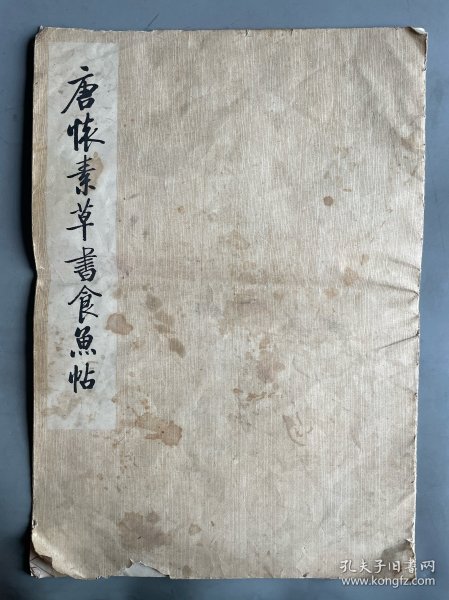 唐怀素草書食魚帖
孔夫子旧書网
www.kongfz.com